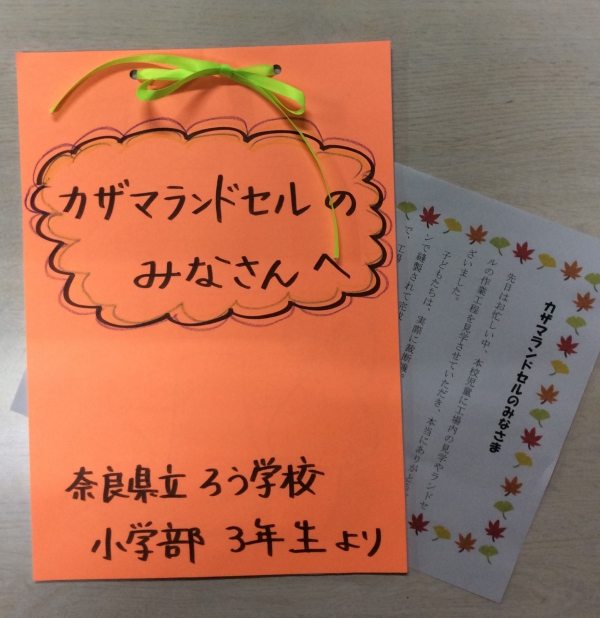 カザマランドセルの
みなさんへ
奈良県立ろう学校
小学部 3年生より
カザマランドセルのみなさま
先日はお忙しい中、本校児童に工場内の見学やランドセ
ルの作業工程を見学させていただき、本当にありがと
ざいました。
子どもたちは、実際に裁断
ンで縫製されて
で、工場